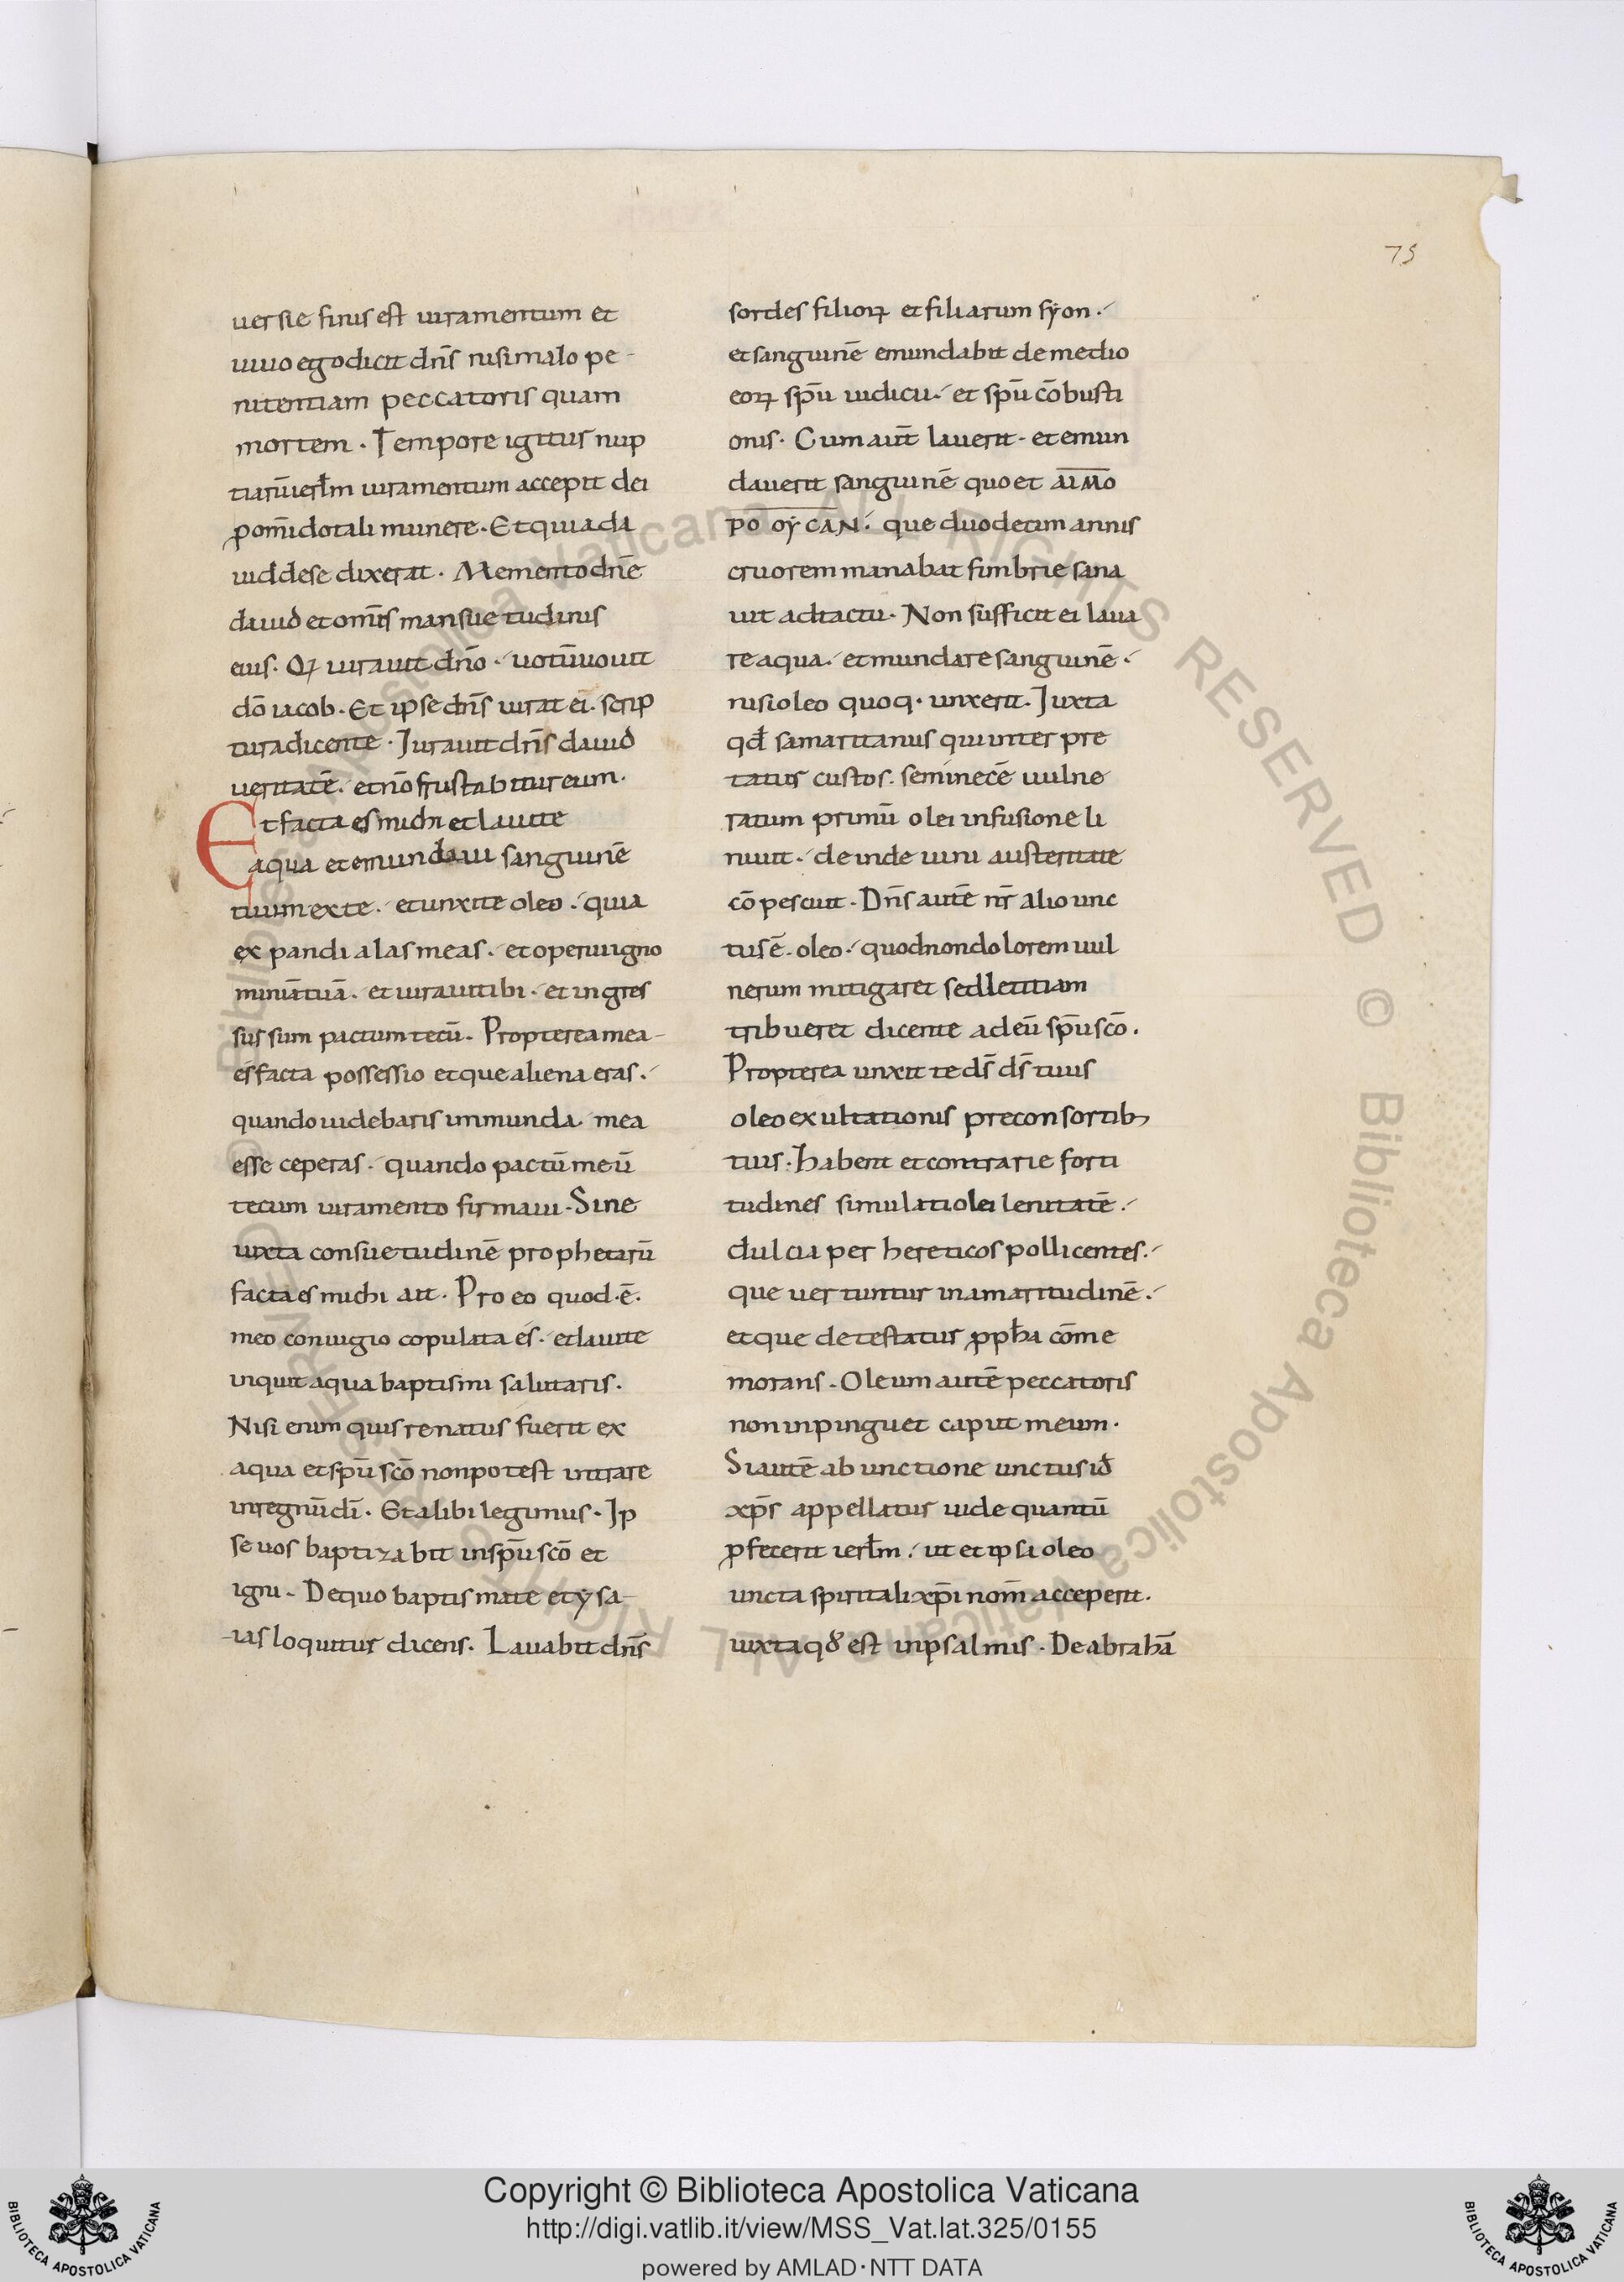 75
uersie finis est iuramentum et
uiuo ego dicit dn̄s nisi malo pe-
nitentiam peccatoris quam
mortem. Tempore igitur nup
tiarū ierl̄m iuramentum accepit dei
pom̄i dotali munere. Et quia da
uid de se dixerat. Memento dn̄e
dauid et om̄is mansuetudinis
eius. Qꝝ iurauit dn̄o. uotū uouit
dō iacob. Et ipse dn̄s iurat ei. scrip
tura dicente. Iurauit dn̄s dauid
ueritatē. et nō frustabitur eum.
Et facta es michi et laui te
aqua et emundaui sanguinē
tuum ex te. et unxi te oleo. quia
expandi alas meas. et operui igno
miniā tuā. et iuraui tibi. et ingres
sus sum pactum tecū. Propterea mea-
es facta possessio et que aliena eras.
quando uidebaris inmunda. mea
esse ceperas. quando pactū meū
tecum iuramento firmaui. Siue
iuxta consuetudinē prophetarū
facta es michi ait. Pro eo quod .ē.
meo coniugio copulata es. et laui te
inquit aqua baptismi salutaris.
Nisi enim quis renatus fuerit ex
aqua et spū scō non potest intrare
in regnū dī. Et alibi legimus. Ip
se uos baptizabit in spū scō et
igni. De quo baptismate et ysa-
-ias loquitur dicens. Lauabit dn̄s
sordes filioꝝ et filiarum syon.
et sanguinē emundabit de medio
eoꝝ spū iudicii. et spū cōbusti
onis. Cum aut̄ lauerit. et emun
dauerit sanguinē quo et ΑΙΜΟ
ΡΟΟΥCΑΝ. que duodecim annis
cruorem manabat fimbrie sana
uit adtactu. Non sufficit ei laua
re aqua. et mundare sanguinē.
nisi oleo quoq. unxerit. Iuxta
qđ samaritanus qui interpre
tatur custos. seminecē uulne
ratum primū olei infusione li
niuit. deinde uini austeritate
cōpescuit. Dn̄s autē nr̄ alio unc
tus ē. oleo. quod non dolorem uul
nerum mitigaret sed letitiam
tribueret dicente ad eū spū scō.
Propterea unxit te ds̄ ds̄ tuus
oleo exultationis pre consortib;
tuis. Habent et contrarie forti
tudines simulati olei lenitatē.
dulcia per hereticos pollicentes.
que uertuntur in amaritudinē.
et que detestatur ꝓpħa cōme
morans. Oleum autē peccatoris
non inpinguet caput meum.
Si autē ab unctione unctus id
xp̄s appellatur uide quantū
ꝓfecerit ierl̄m. ut et ipsa oleo
uncta spiritali xp̄i nom̄ acceperit.
iuxta qđ est in psalmis. De abrahā
Copyright © Biblioteca Apostolica Vaticana
http://digi.vatlib.it/view/MSS_Vat.lat.325/0155
powered by AMLAD·NTT DATA